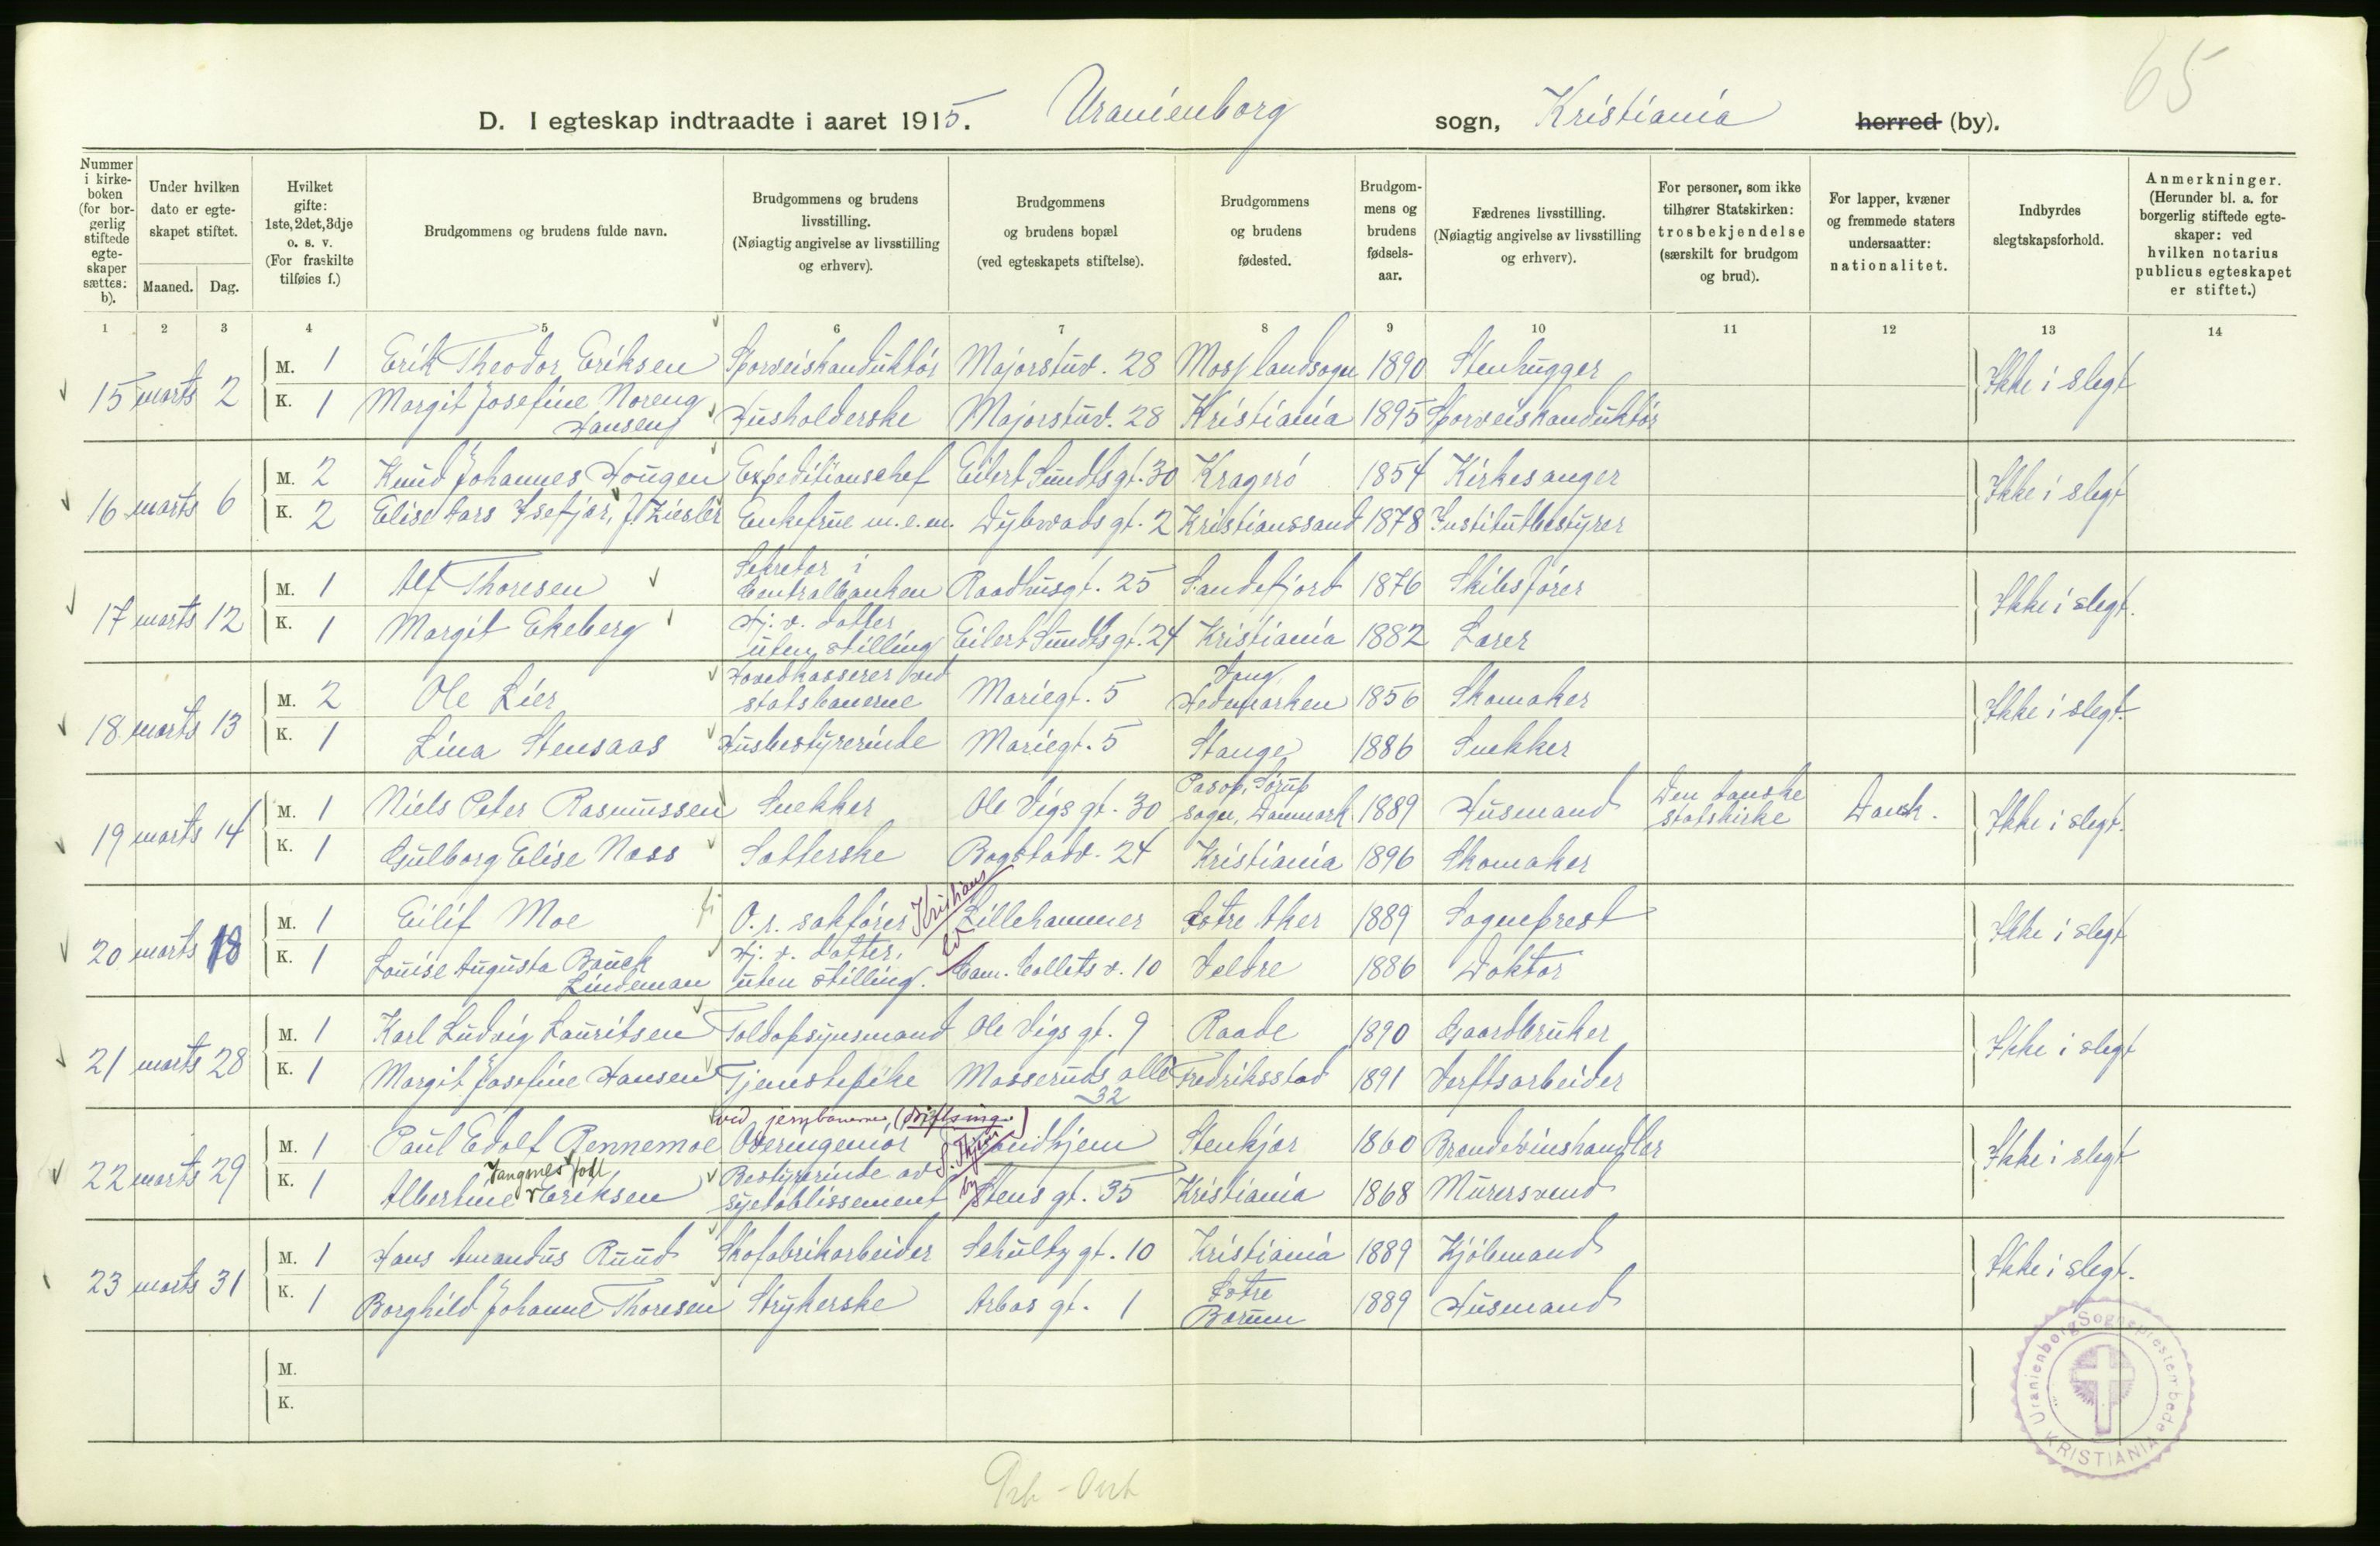 65
D. I egteskap indtraadte i aaret 1915. Uranienborg sogn, Kristiania herred (by).
Nummer i kirkeboken (for borgerlig stiftede egteskaper sættes: b).
Under hvilken dato er egteskapet stiftet.
Maaned. Dag.
Hvilket gifte: 1ste, 2det, 3dje o. s. v. (For fraskilte tilføies f.)
Brudgommens og brudens fulde navn.
Brudgommens og brudens livsstilling. (Nøiagtig angivelse av livsstilling og erhverv).
Brudgommens og brudens bopæl (ved egteskapets stiftelse).
Brudgommens og brudens fødested.
Brudgommens og brudens fødselsaar.
Fædrenes livsstilling. (Nøiagtig angivelse av livsstilling og erhverv).
For personer, som ikke tilhører Statskirken: trosbekjendelse (særskilt for brudgom og brud).
For lapper, kvæner og fremmede staters undersaatter: nationalitet.
Indbyrdes slegtskapsforhold.
Anmerkninger. (Herunder bl. a. for borgerlig stiftede egteskaper: ved hvilken notarius publicus egteskapet er stiftet.)
1 2 3 4 5 6 7 8 9 10 11 12 13 14
15 marts 2 M. 1 Erik Theodor Eriksen Sporveiskonduktör Majorstuv. 28 Moss landsogn 1890 Stenhugger Ikke i slegt
K. 1 Margit Josefine Noreng Hansen Husholderske Majorstuv. 28 Kristiania 1895 Sporveiskonduktör
16 marts 6 M. 2 Knud Johannes Hougen Expeditionschef Eilert Sundts gt. 30 Kragerö 1854 Kirkesanger Ikke i slegt
K. 2 Elise Lars Isefjær, f. Ziesler Enkefrue m. e. m. Dybwads gt. 2 Kristianssand 1878 Institutbestyrer
17 marts 12 M. 1 Alf Thoresen Sekretær i Centralbanken Raadhusgt. 25 Sandefjord 1876 Skibsförer Ikke i slegt.
K. 1 Margit Ekeberg Hj. v. datter uten stilling Eilert Sundts gt. 24 Kristiania 1882 Lærer
18 marts 13 M. 2 Ole Lier Hovedkasserer ved statsbanerne Mariegt. 5 Vang Hedemarken 1856 Skomaker Ikke i slegt.
K. 1 Lina Stensaas Husbestyrerinde Mariegt. 5 Stange 1886 Snekker
19 marts 14 M. 1 Niels Peter Rasmussen Snekker Ole Vigs gt. 30 Sörup sogn, Danmark. 1889 Husmand Den danske statskirke Dansk. Ikke i slegt.
K. 1 Gulborg Elise Næss Sætterske Bogstadv. 24 Kristiania 1896 Skomaker
20 marts 18 M. 1 Eilif Moe O. r. sakförer Kristians Lillehammer Östre Aker 1889 Sogneprest Ikke i slegt
K. 1 Louise Augusta Bauck Lindeman Hj. v. datter, uten stilling. Cam. Colletts v. 10 Veldre 1886 Doktor
21 marts 28 M. 1 Karl Ludvig Lauritsen Toldopsynsmand Ole Vigs gt. 9 Raade 1890 Gaardbruker Ikke i slegt
K. 1 Margit Josefine Hansen Tjenestepike Masseruds allé 32 Fredriksstad 1891 Verftsarbeider
22 marts 29 M. 1 Paul Edolf Rennemoe Overingeniör ved jernbanerne, (driftsing.) Stenkjær 1860 Brændevinshandler Ikke i slegt
K. 1 Albertine Vangsnes født Eriksen Bestyrerinde av syetablissement Stens gt. 35 Kristiania 1868 Murersvend
23 marts 31 M. 1 Hans Amandus Ruud Skofabrikarbeider Schultz gt. 10 Kristiania 1889 Kjölemand Ikke i slegt.
K. 1 Borghild Johanne Thoresen Strykerske Arbos gt. 1 Östre Bærum 1889 Husmand
M.
K.
Uranienborg Sogneprestembede KRISTIANIA